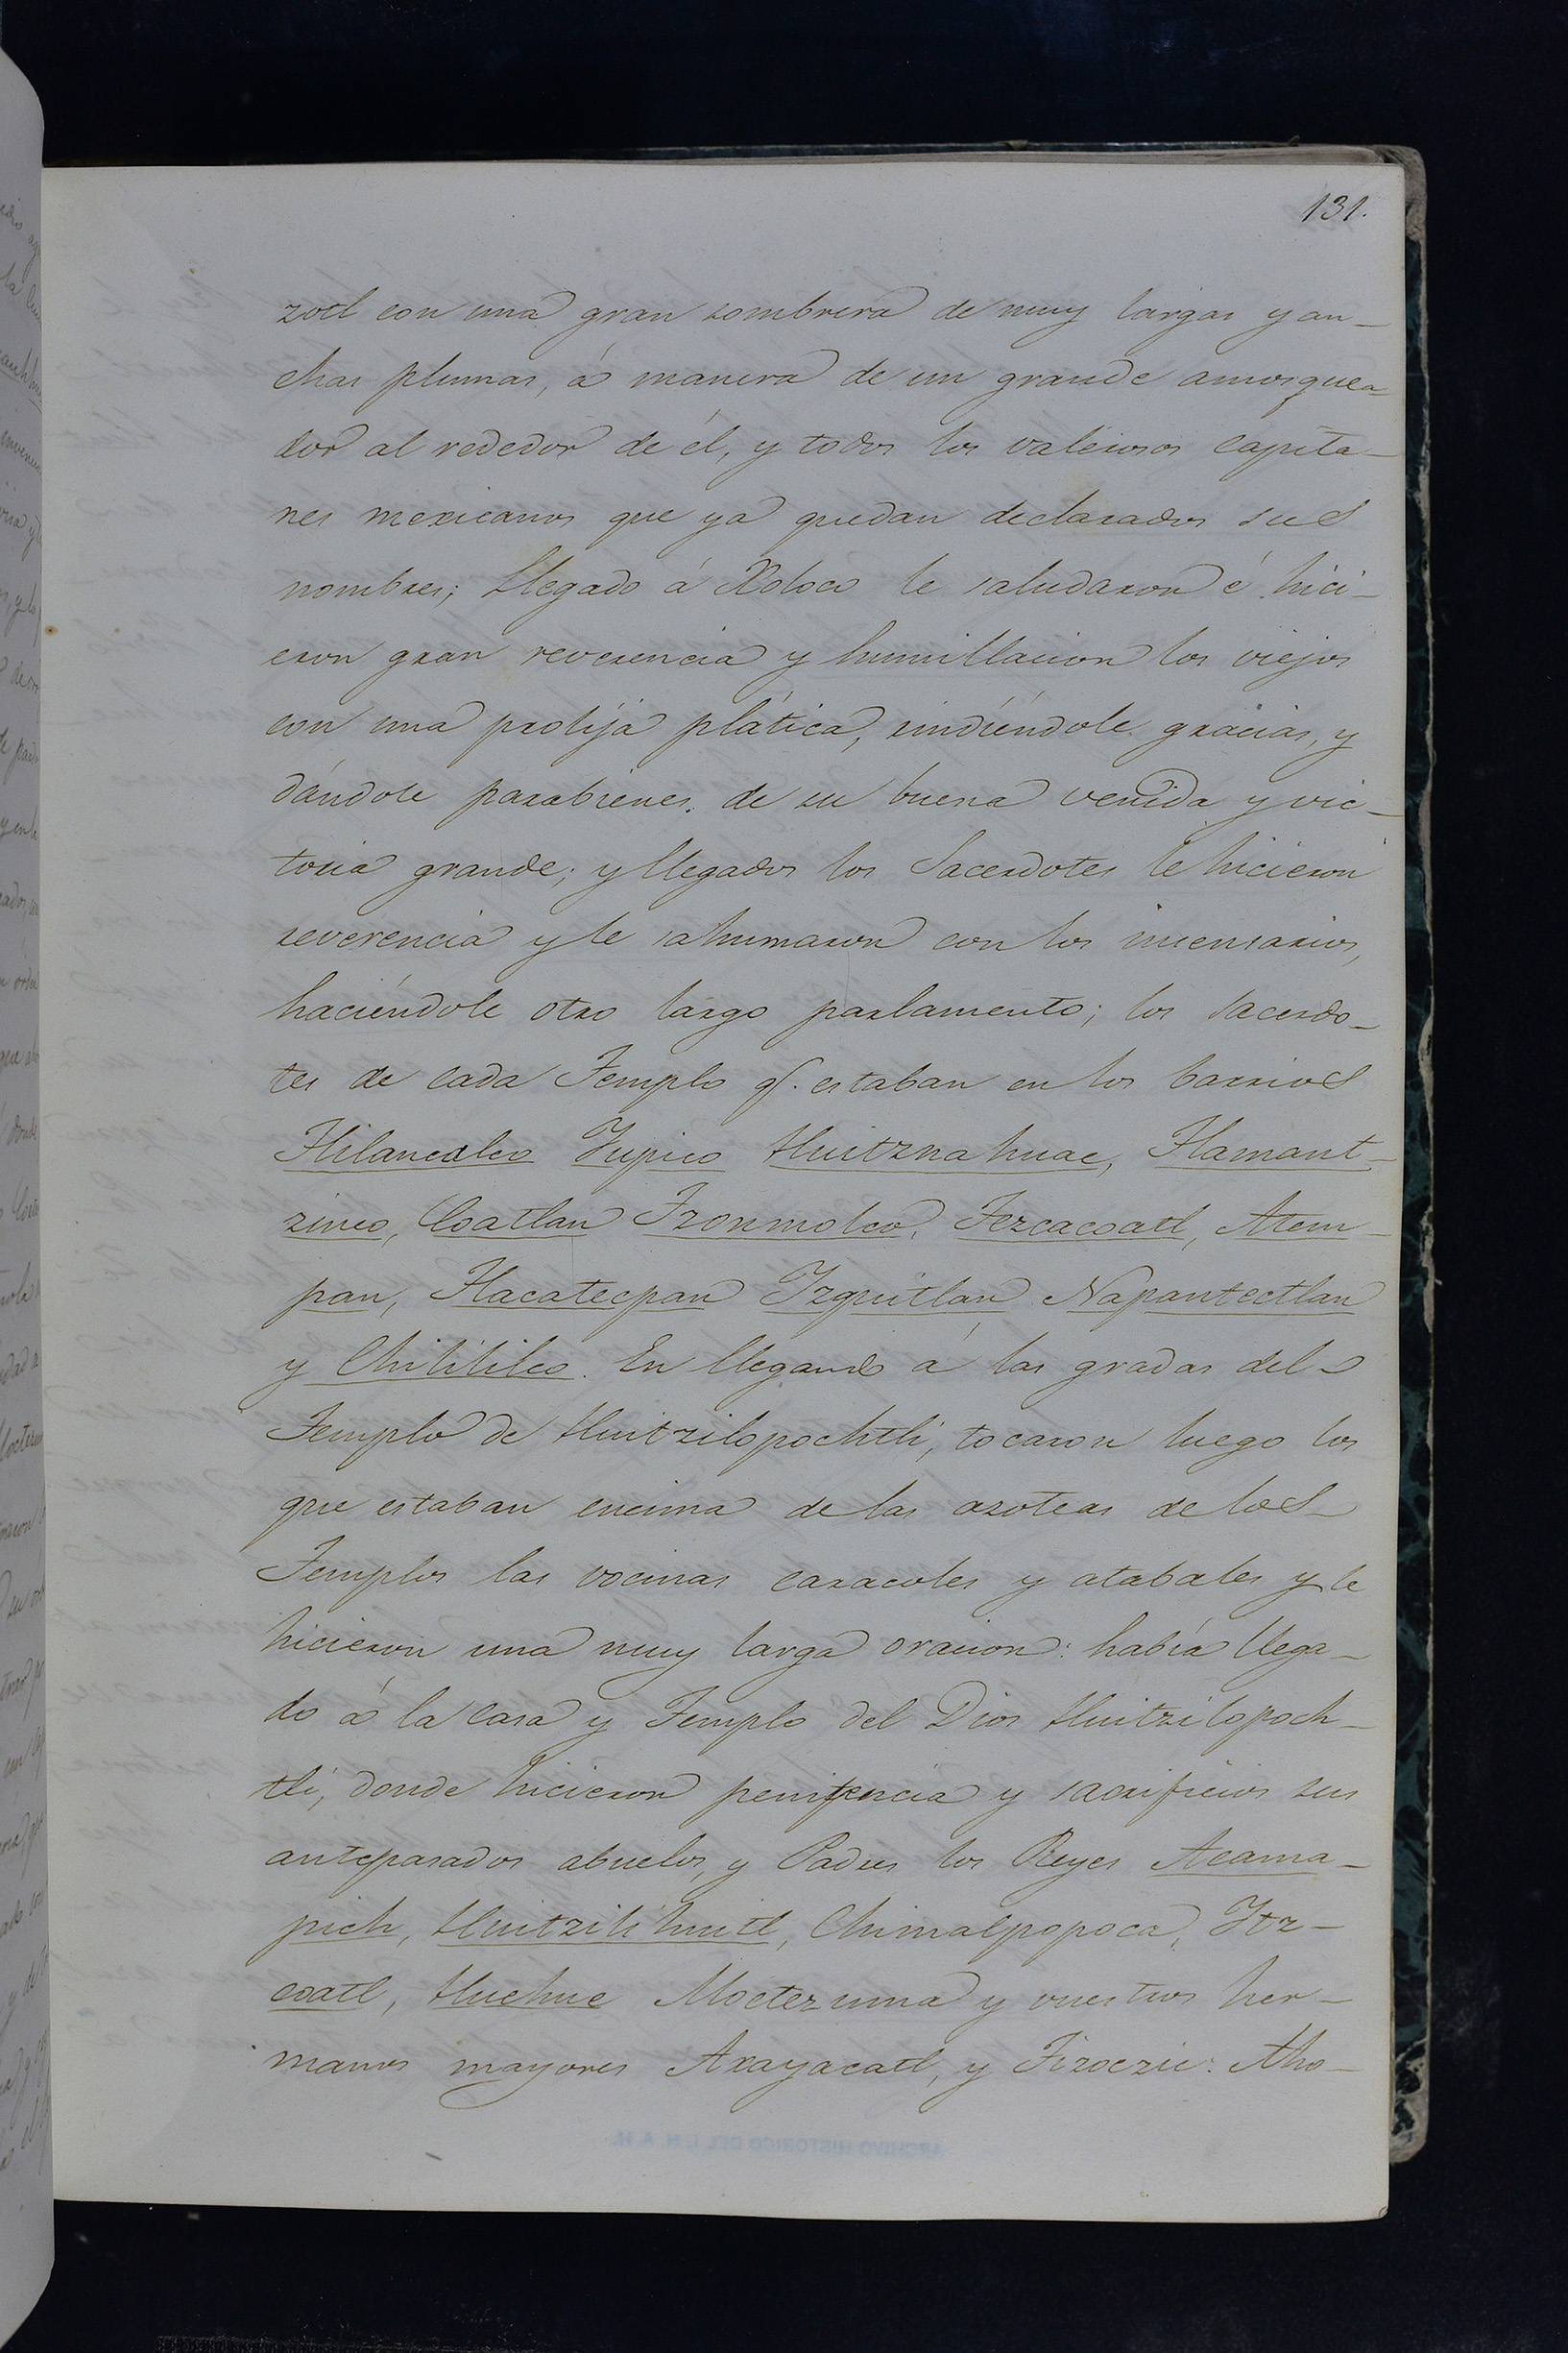 131.
zotl con una gran sombrera de muy largas y an-
chas plumas, á manera de un grande amosquea-
dor al rededor de él, y todos los valerosos capita-
nes mexicanos que ya quedan declarados sus
nombres; llegado á Xoloco le saludaron é hici-
eron gran reverencia y humillacion los viejos
con una prolija plática, rindiéndole gracias, y
dándole parabienes de su buena venida y vic-
toria grande; y llegados los Sacerdotes le hicieron
reverencia y le sahumaron con los incensarios,
haciéndole otro largo parlamento; los sacerdo-
tes de cada Templo q. estaban en los barrios
Tlilancalco Yupico Huitznahuac, Tlamant-
zinco, Coatlan Tzonmolco, Tezcacoatl, Atem-
pan, Tlacatecpan Izquitlan Napantectlan
y Chililico. En llegando á las gradas del
Templo de Huitzilopochtli, tocaron luego los
que estaban encima de las azoteas de los
Templos las vocinas caracoles y atabales y le
hicieron una muy larga oracion: había llega-
do á la casa y Templo del Dios Huitzilopoch-
tli, donde hicieron penitencia y sacrificios sus
antepasados abuelos, y Padres los Reyes Acama-
pich, Huitzilihuitl, Chimalpopoca, Itz-
coatl, Huehue Moctezuma y vuestros her-
manos mayores Axayacatl, y Tizoczic: Aho-
ARCHIVO HISTORICO DEL I. N. A. H.